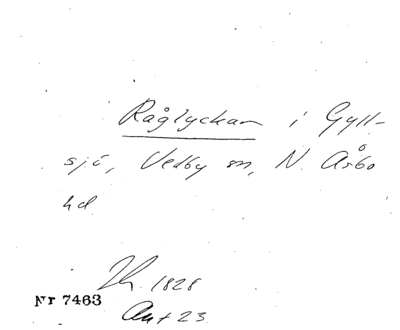 Råglyckan i Gyll-
sjö, Vedby sn, N. Åsbo
hd
1828
Nr 7463
Ant 23